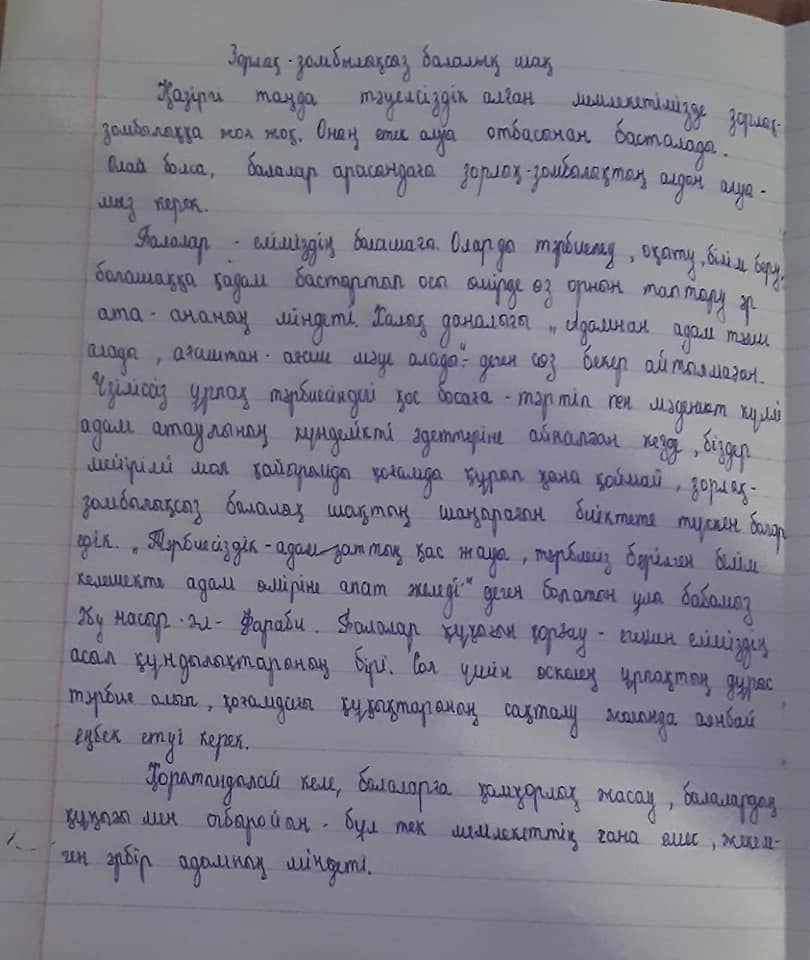 Зорлық-зомбылықсыз балалық шақ
Қазіргі таңда тәуелсіздік алған мемлекетімізде зорлық-
зомбылыққа жол жоқ. Оның етек алуы отбасынан басталады.
Олай болса, балалар арасындағы зорлық-зомбылықтың алдын алуы-
мыз керек.
Балалар - еліміздің болашағы. Оларды тәрбиелеу, оқыту, білім беру,
болашаққа қадам бастыртып осы өмірде өз орнын таптыру әр
ата-ананың міндеті. Халық даналығы „Адамнан адам тәлім
алады, ағаштан-ағаш мәуе алады"- деген сөз бекер айтылмаған.
Үзіліссіз ұрпақ тәрбиесіндегі қос босаға - тәртіп пен мәдениет күллі
адам атаулының күнделікті әдеттеріне айналған кезде, біздер
мейірімі мол қайырымды қоғамды құрып қана қоймай, зорлық-
зомбылықсыз балалық шақтың шаңырағын биіктете түскен болар
едік. „Тәрбиесіздік-адамзаттың қас жауы, тәрбиесіз берілген білім
келешекте адам өміріне апат әкеледі" деген болатын ұлы бабамыз
Әбу насыр-әл-Фараби. Балалар құқығын қорғау - еліміздің
асыл құндылықтарының бірі. Сол үшін өскелең ұрпақтың дұрыс
тәрбие алып, қоғамдағы құқықтарының сақталу жолында аянбай
еңбек етуі керек.
Қорытындылай келе, балаларға қамқорлық жасау, балалардың
құқығы мен абыройын - бұл тек мемлекеттің ғана емес,
әрбір адамның міндеті.